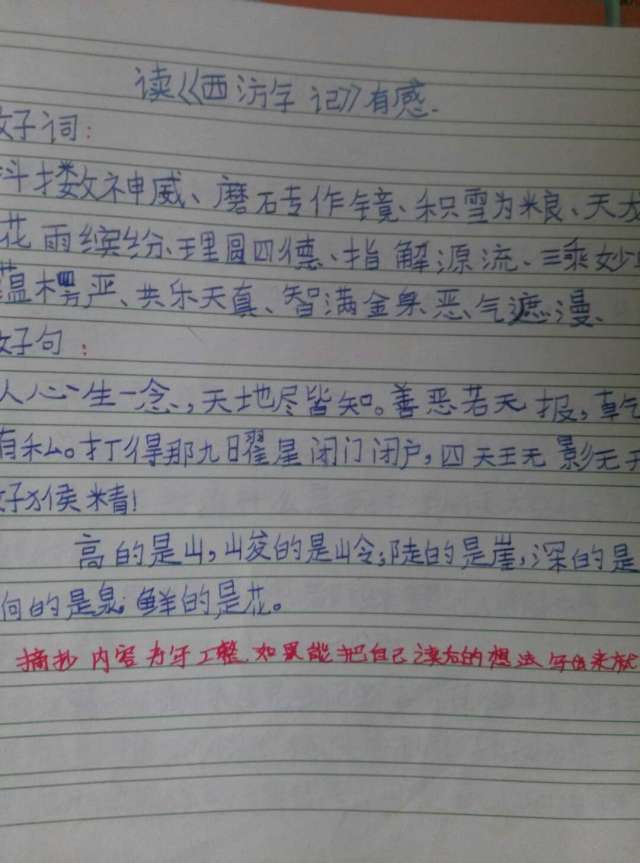 读《西游记》有感.
好词:
抖擞神威、磨砖作镜、积雪为粮、天
花雨缤纷、理圆四德、指解源流、三乘妙
蕴楞严、共乐天真、智满金身恶气遮漫、
好句:
人心一生一念,天地尽皆知。善恶若无报,乾
有私。打得那九曜星闭门闭户,四天王无影无
好猴精!
高的是山,峻的是岭;陡的是崖,深的是
响的是泉;鲜的是花。
摘抄内容书写工整.如果能把自己读后的想法写出来就